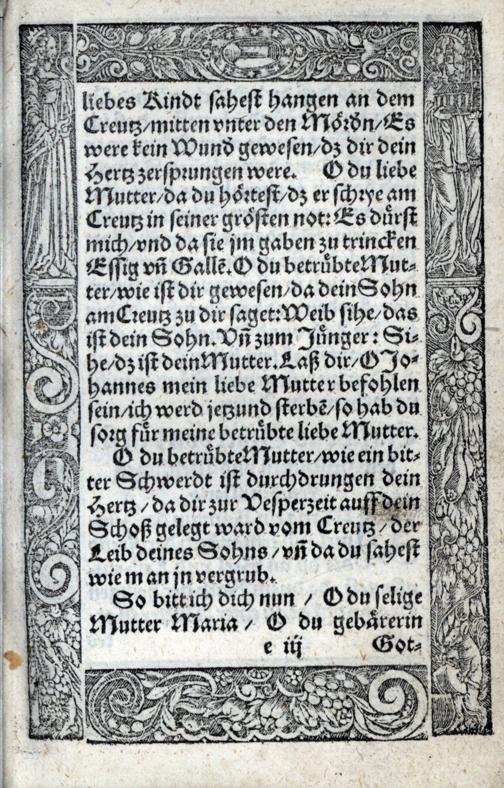 liebes Kindt sahest hangen an dem
Creutz/mitten vnter den Mördn/Es
were kein Wund gewesen/dz dir dein
Hertz zersprungen were. O du liebe
Mutter/da du hörtest/dz er schrye am
Creutz in seiner grösten not: Es dürst
mich/vnd da sie jm gaben zu trincken
Essig vn̄ Gallē. O du betrübte Mut-
ter/wie ist dir gewesen/da dein Sohn
am Creutz zu dir saget: Weib sihe/das
ist dein Sohn. Vn̄ zum Jünger: Si-
he/dz ist dein Mutter. Laß dir/O Jo-
hannes mein liebe Mutter befohlen
sein/ich werd jetzund sterbē/so hab du
sorg für meine betrübte liebe Mutter.
O du betrübte Mutter/wie ein bit-
ter Schwerdt ist durchdrungen dein
Hertz/da dir zur Vesperzeit auff dein
Schoß gelegt ward vom Creutz/der
Leib deines Sohns/vn̄ da du sahest
wie man jn vergrub.
So bitt ich dich nun/O du selige
Mutter Maria/O du gebärerin
e iij Got-